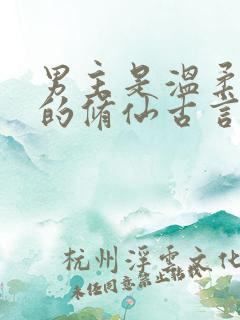 男主是温柔
的修仙古言
杭州浮云文化
未经同意禁止转载